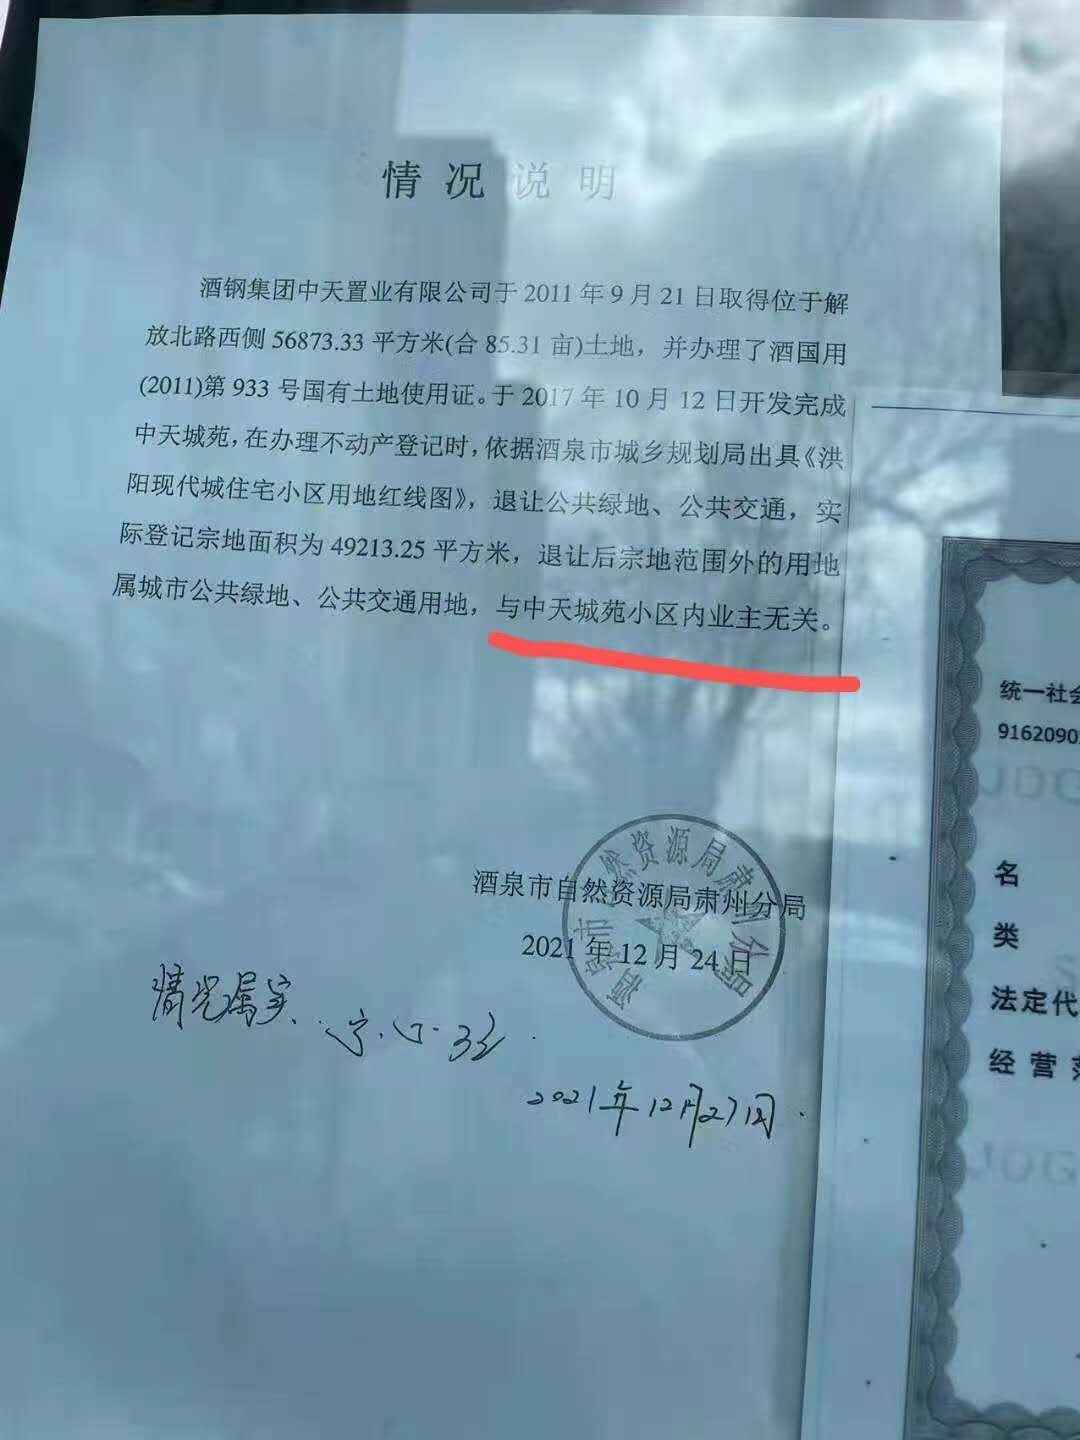 情况说明
酒钢集团中天置业有限公司于2011年9月21日取得位于解
放北路西侧56873.33平方米(合85.31亩)土地，并办理了酒国用
(2011)第933号国有土地使用证。于2017年10月12日开发完成
中天城苑，在办理不动产登记时，依据酒泉市城乡规划局出具《洪
阳现代城住宅小区用地红线图》，退让公共绿地、公共交通，实
际登记宗地面积为49213.25平方米，退让后宗地范围外的用地
属城市公共绿地、公共交通用地，与中天城苑小区内业主无关。
酒泉市自然资源局肃州分局
2021年12月24日
酒泉市自然资源局肃州分局
情况属实
2021年12月27日
统一社会
9162090
名
类
法定代
经营范